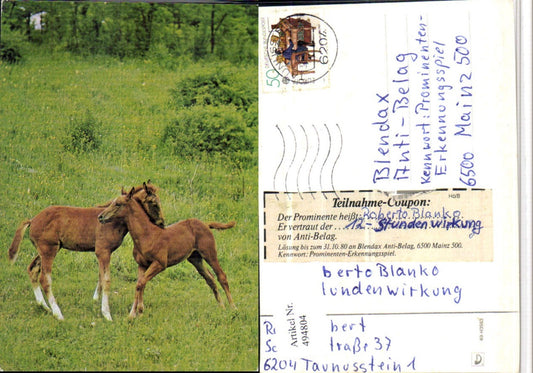 50
6204
Blendax
Anti-Belag
Kennwort: Prominenten-
Erkennungsspiel
6500 Mainz 500
Teilnahme-Coupon:
Der Prominente heißt: Roberto Blanko
Er vertraut der ... 12-Stundenwirkung
von Anti-Belag.
Lösung bis zum 31.10.80 an Blendax Anti-Belag, 6500 Mainz 500.
Kennwort: Prominenten-Erkennungsspiel.
berto Blanko
lundenwirkung
Artikel Nr.
494804
bert
traße 37
6204 Taunusstein 1